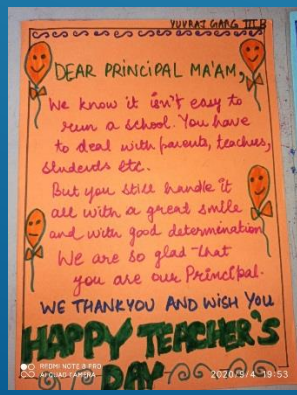 YUVRAJ GARG III B
DEAR PRINCIPAL MA'AM,
We know it isn't easy to
run a school. You have
to deal with parents, teachers,
students etc.
But you still handle it
all with a great smile
and with good determination
We are so glad that
you are our Principal.
WE THANKYOU AND WISH YOU
HAPPY TEACHER'S
DAY
REDMI NOTE 8 PRO
AI QUAD CAMERA
2020/9/4 19:53